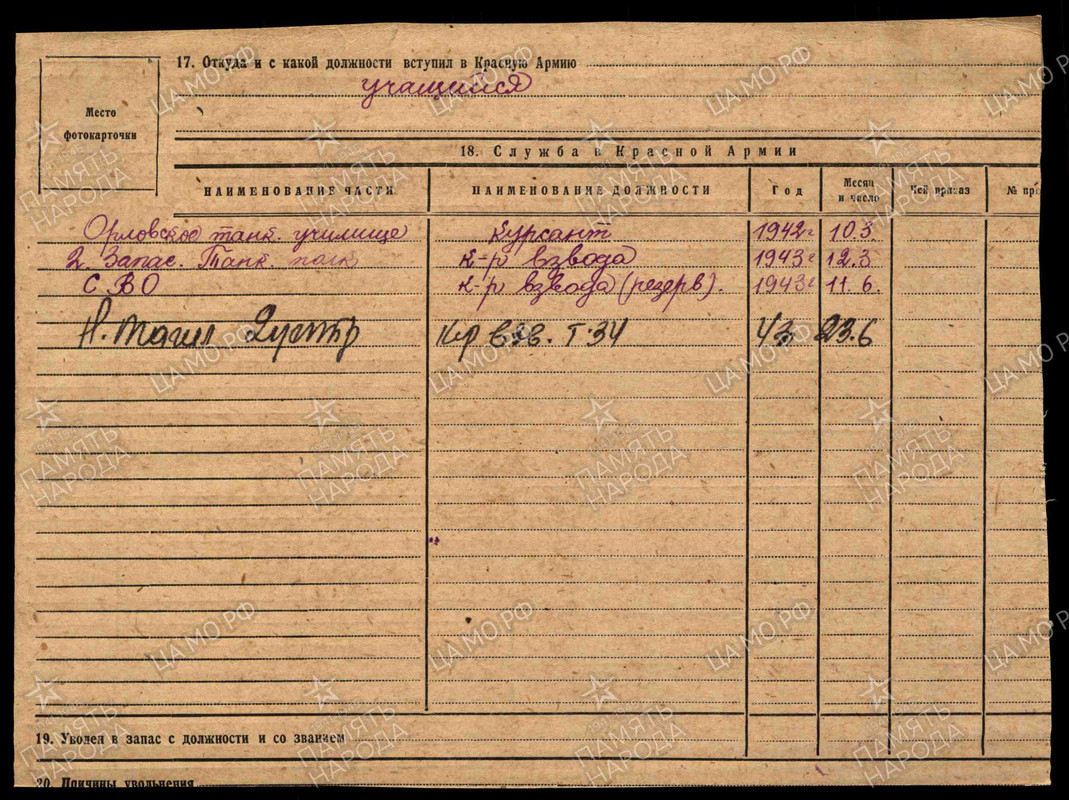 17. Откуда и с какой должности вступил в Красную Армию
учащийся
Место
фотокарточки
18. Служба в Красной Армии
НАИМЕНОВАНИЕ ЧАСТИ НАИМЕНОВАНИЕ ДОЛЖНОСТИ Год Месяц и число Чей приказ № при
Орловское танк. училище курсант 1942г 10.3
2 Запас. Танк. полк к-р взвода 1943г 12.3
СВО к-р взвода (резерв). 1943г 11.6.
Н. Тагил К-р взв. Т-34 43 23.6
19. Уволен в запас с должности и со званием
20. Причины увольнения
ЦА МО РФ
ПАМЯТЬ НАРОДА